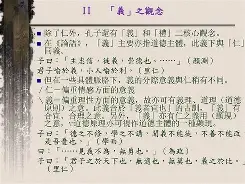 II 「義」之觀念
除了仁外，孔子還有「義」和「禮」二核心觀念。
在《論語》，「義」主要亦指道德主體，此義下與「仁」同義。
子曰：「主忠信，徙義，崇德也。……」（顏淵）
君子喻於義，小人喻利。（里仁）
但在一些具體脈絡下，義的分際意義與仁稍有不同。
仁－偏重情感方面的意義
義－偏重理性方面的意義，故亦可有義理、道理（道德
之意，此義合於「義者宜也」的古訓，「義」有
合宜、合理之意。另外，「義」亦有仁之義用（
之意，
子曰：「德之不修，學之不講，聞義不能徙，不善不能改，是吾憂也。」（學而）
曰：「……見義不為，無勇也。」（為政）
子曰：「君子之於天下也，無適也，無莫也，義之於比。」（里仁）